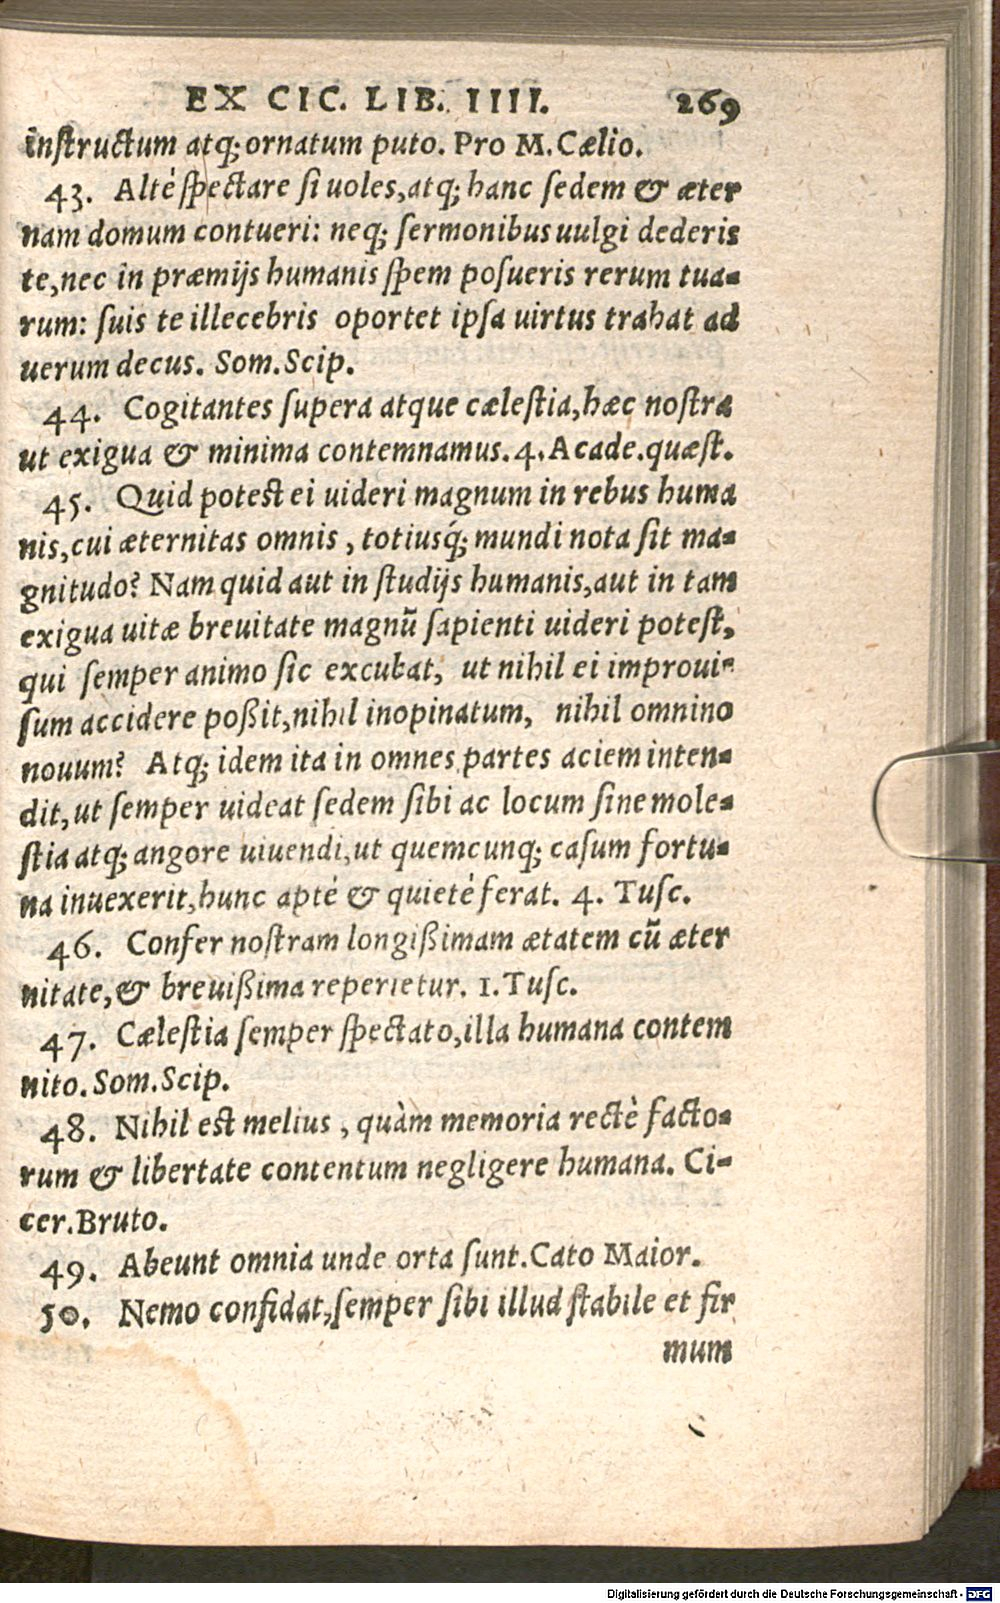 EX CIC. LIB. IIII. 269
instructum atq; ornatum puto. Pro M. Cælio.
43. Altè spectare si uoles, atq; hanc sedem & æter
nam domum contueri: neq; sermonibus uulgi dederis
te, nec in præmijs humanis spem posueris rerum tua-
rum: suis te illecebris oportet ipsa uirtus trahat ad
uerum decus. Som. Scip.
44. Cogitantes supera atque cælestia, hæc nostra
ut exigua & minima contemnamus. 4. Acade. quæst.
45. Quid potest ei uideri magnum in rebus huma
nis, cui æternitas omnis, totiusq́; mundi nota sit ma-
gnitudo? Nam quid aut in studijs humanis, aut in tam
exigua uitæ breuitate magnũ sapienti uideri potest,
qui semper animo sic excubat, ut nihil ei improui-
sum accidere poßit, nihil inopinatum, nihil omnino
nouum? Atq; idem ita in omnes partes aciem inten-
dit, ut semper uideat sedem sibi ac locum sine mole-
stia atq; angore uiuendi, ut quemcunq; casum fortu-
na inuexerit, hunc aptè & quietè ferat. 4. Tusc.
46. Confer nostram longißimam ætatem cũ æter
nitate, & breuißima reperietur. 1. Tusc.
47. Cælestia semper spectato, illa humana contem
nito. Som. Scip.
48. Nihil est melius, quàm memoria rectè facto-
rum & libertate contentum negligere humana. Ci-
cer. Bruto.
49. Abeunt omnia unde orta sunt. Cato Maior.
50. Nemo confidat, semper sibi illud stabile et fir
mum
Digitalisierung gefördert durch die Deutsche Forschungsgemeinschaft - DFG